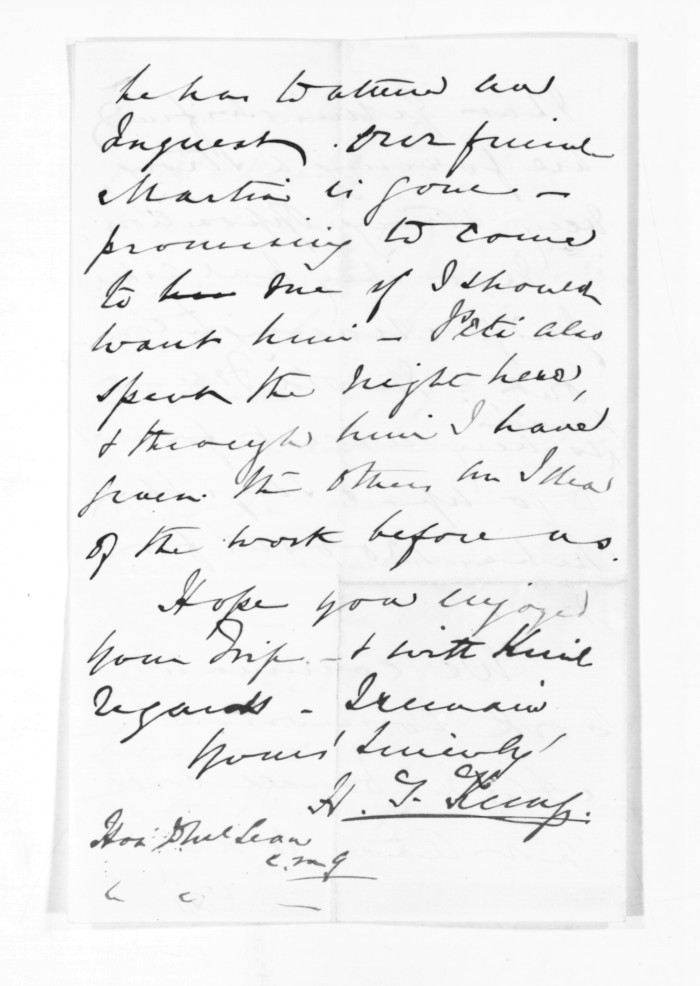 he has to attend an
Inquest. Our friend
Martin is gone -
promising to come
to me if I should
want him - Pete also
spent the night here,
& through him I have
given the others an Idea
of the work before us.
Hope you enjoyed
your Trip. - & with Kind
regards - I remain
Yours Sincerely
H. T. Kemp.
Hon: D McLean
C.M.G